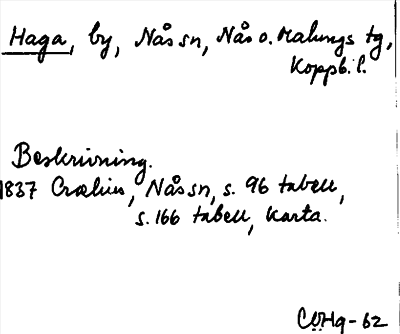 Haga, by, Nås sn, Nås o. Malungs tg,
Koppb. l.
Beskrivning.
1837 Crælius, Nås sn, s. 96 tabell,
s. 166 tabell, karta.
CÖHg-62